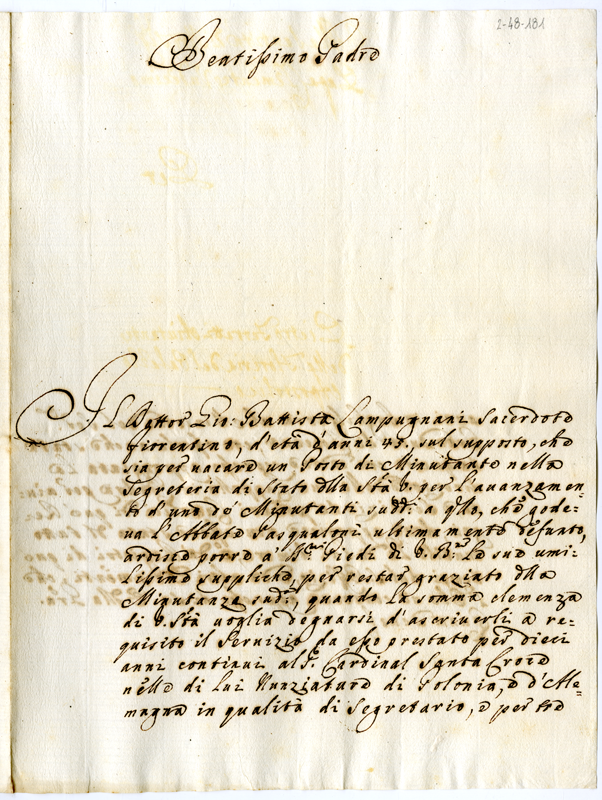 2-48-181
Beatissimo Padre
Il Dottor Gio: Battista Campugnani Sacerdote
fiorentino, d'età d'anni 45., sul supposto, che
sia per uacare un Posto di Minutante nella
Segreteria di Stato dlla Stà V. per l'auanzamen-
to d'uno de' Minutanti sudd.i a qllo, che gode-
ua l'Abbate Pasqualoni ultimamente defunto,
ardisce porre a' Piedi di V. B.ne le sue umi-
lissime suppliche, per restar graziato dlla
Minutanza sud.a, quando la somma clemenza
di V. Stà voglia degnarsi d'ascriuerli a re-
quisito il Seruizio da esso prestato per dieci
anni continui al S. Cardinal Santa Croce
nelle di Lui Nunziature di Polonia, e d'Ale-
magna in qualità di Segretario, e per tre